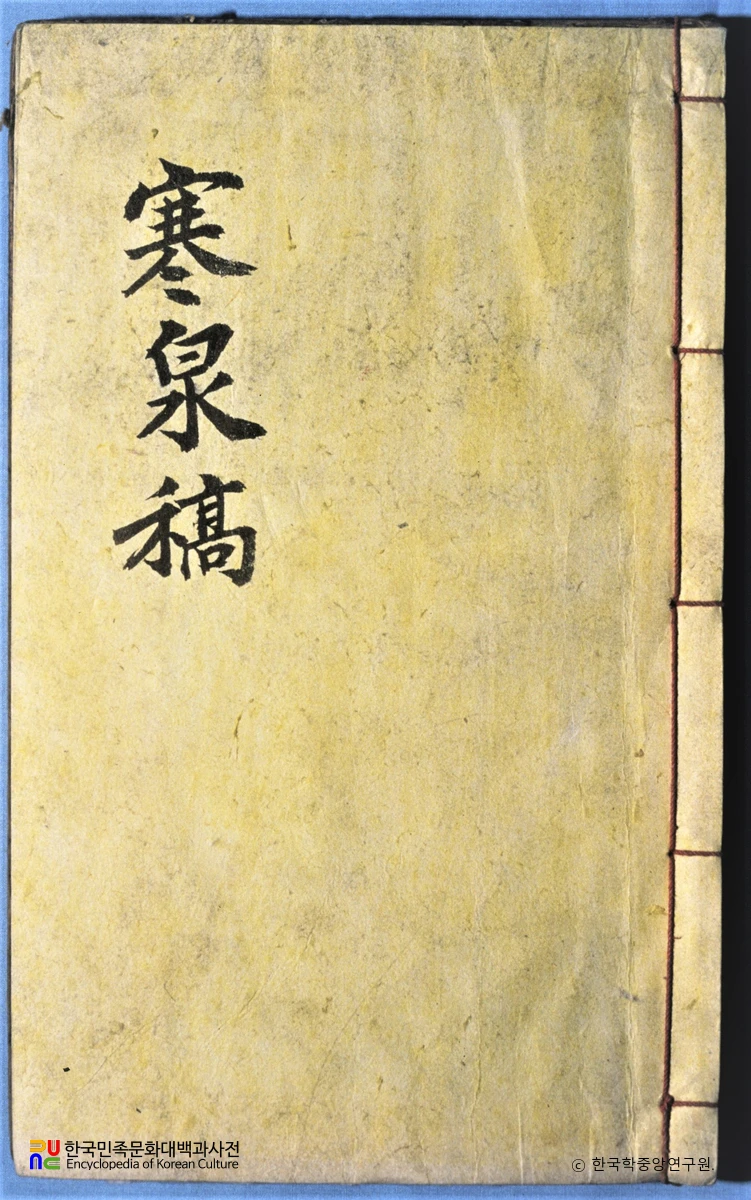 寒泉稿
한국민족문화대백과사전
Encyclopedia of Korean Culture
© 한국학중앙연구원